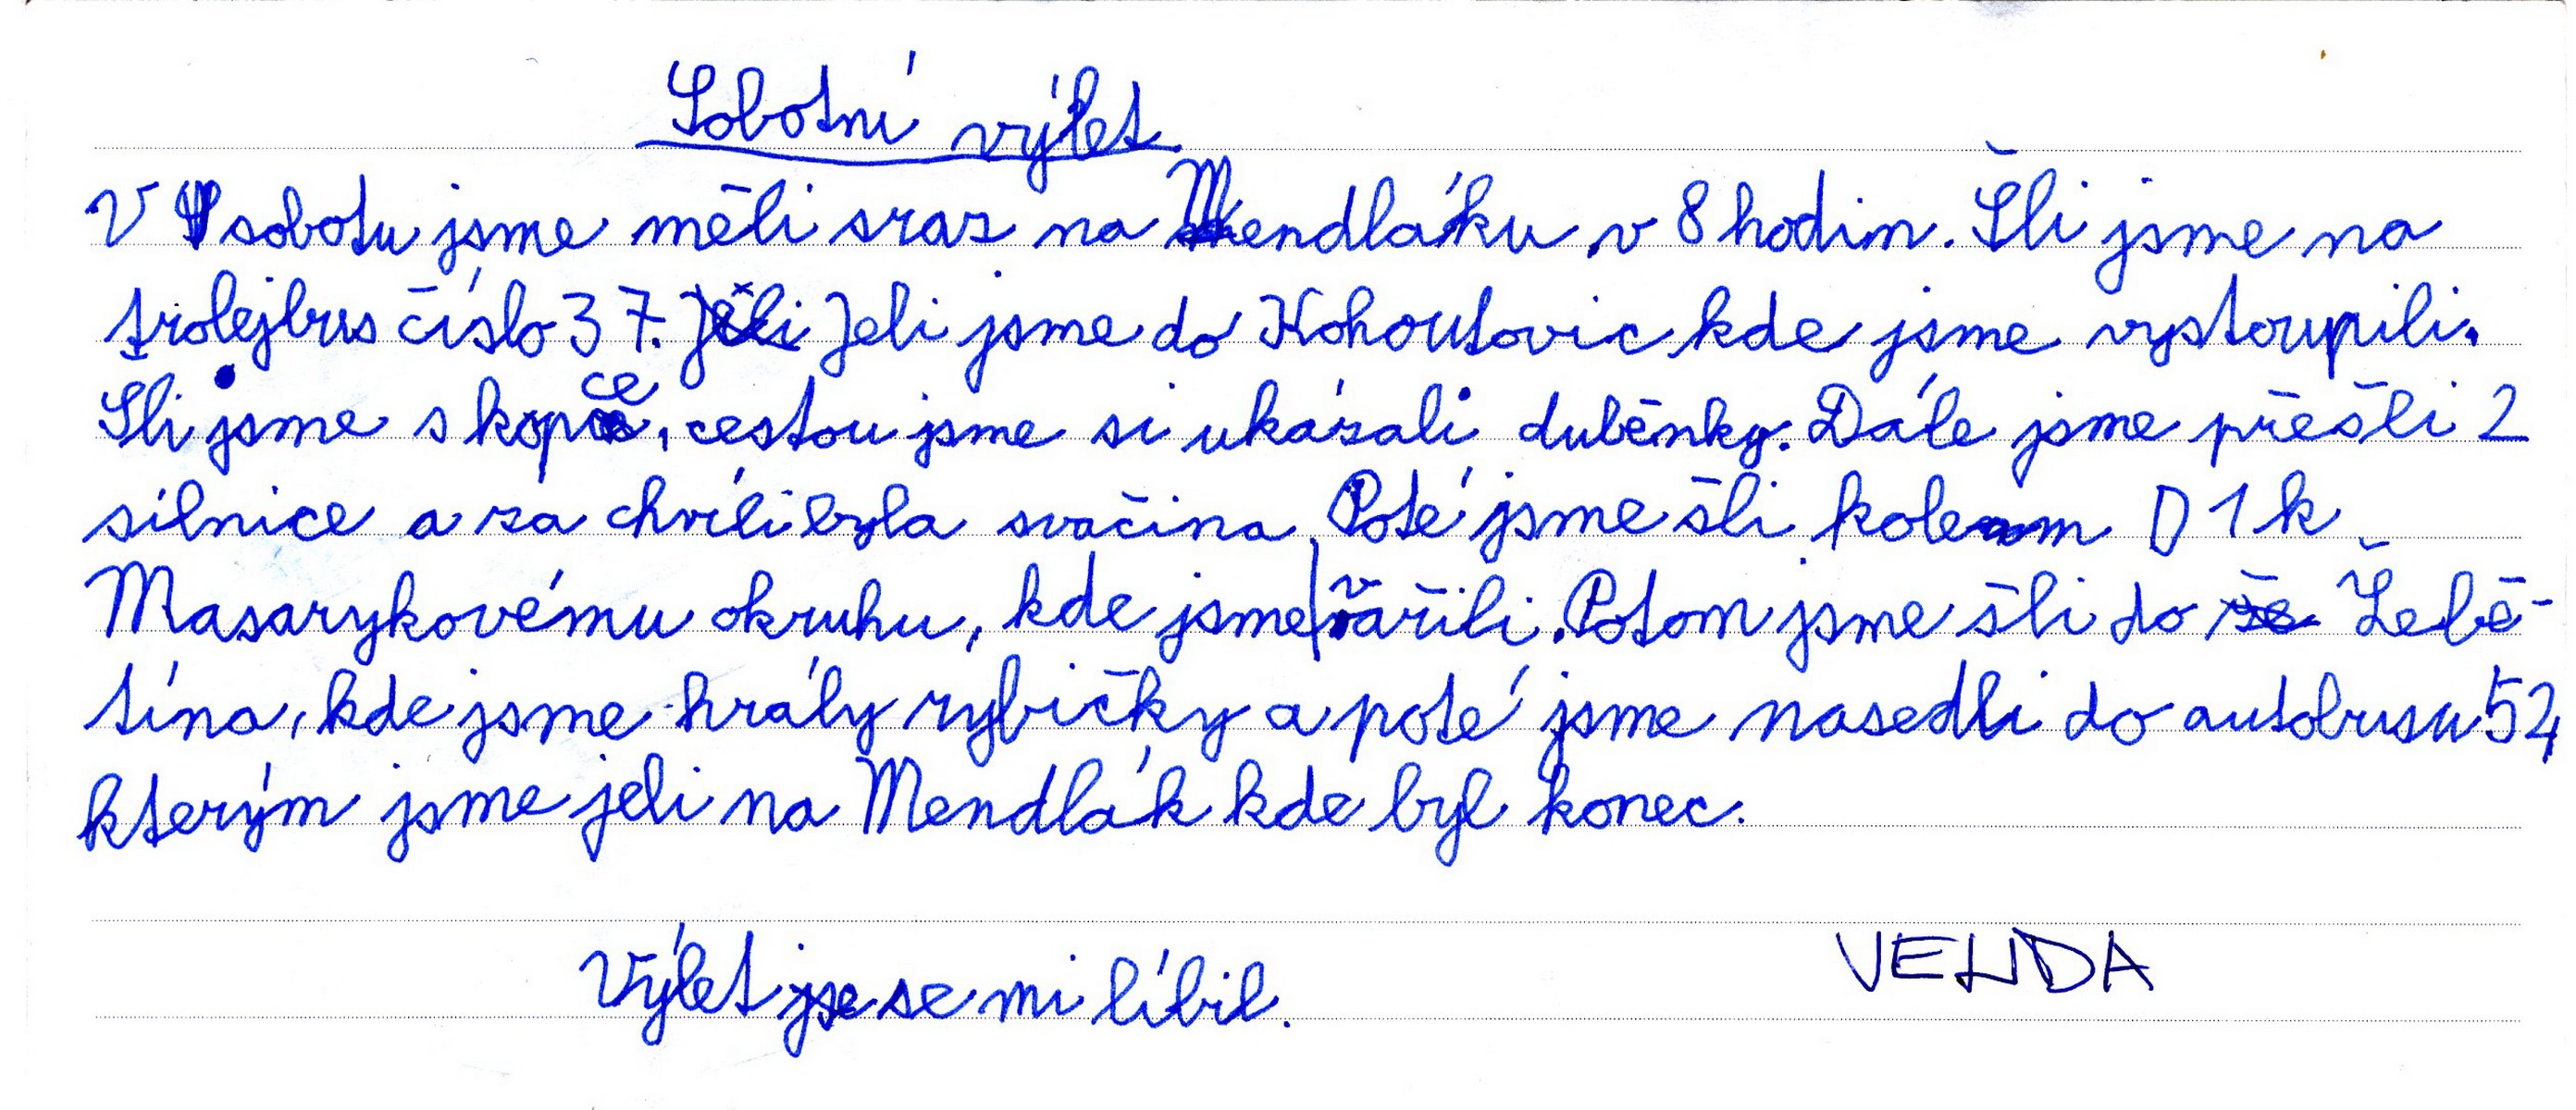 Sobotní výlet
V sobotu jsme měli sraz na Mendláku, v 8 hodin. Šli jsme na
trolejbus číslo 37. Jeli Jeli jsme do Kohoutovic kde jsme vystoupili.
Šli jsme s kopce, cestou jsme si ukázali duběnky. Dále jsme přešli 2
silnice a za chvíli byla svačina. Poté jsme šli kolem D1 k
Masarykovému okruhu, kde jsme vařili. Potom jsme šli do že Žebě-
tína, kde jsme hrály rybičky a poté jsme nasedli do autobusu 52,
kterým jsme jeli na Mendlák kde byl konec.
Výlet se mi líbil.
VENDA